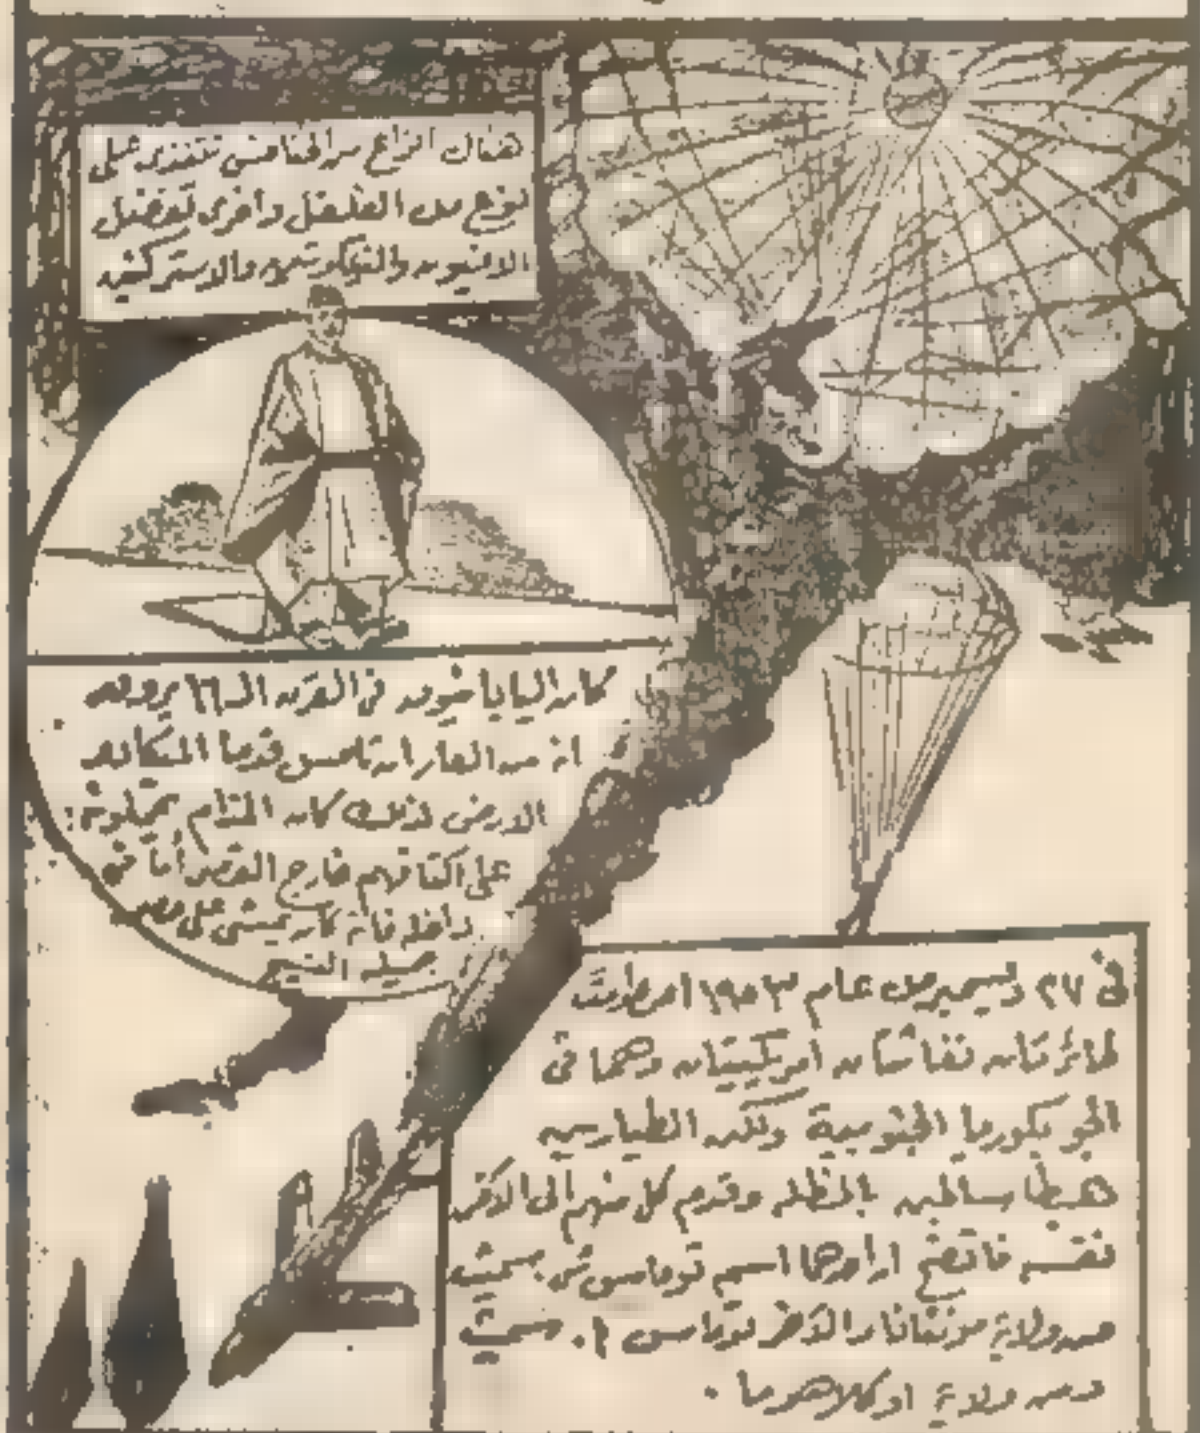 هناك انواع من الخنافس تتغذى على
نوع من الفلفل وأخرى تفضل
الافيون والنيكوتين والاستركنين
كان اليابانيون فى القرن الـ ١٦ يرون
ان من العار ان تلمس قدما الميكادو
الارض لذلك كان الخدام يحملونه
على اكتافهم خارج القصر أما فى
داخله فانه كان يمشى على حصر
جميلة النسج
فى ٢٧ ديسمبر من عام ١٩٥٣ اصطدمت
طائرتان نفاثتان امريكيتان وهما فى
الجو بكوريا الجنوبية ولكن الطيارين
هبطا سالمين بالمظلة وقدم كل منهم الى الاخر
نفسه فاتضح ان احدهما اسمه توماس ش. سميث
من ولاية مونتانا والآخر توماس ا. سميث
ومن ولاية اوكلاهوما .